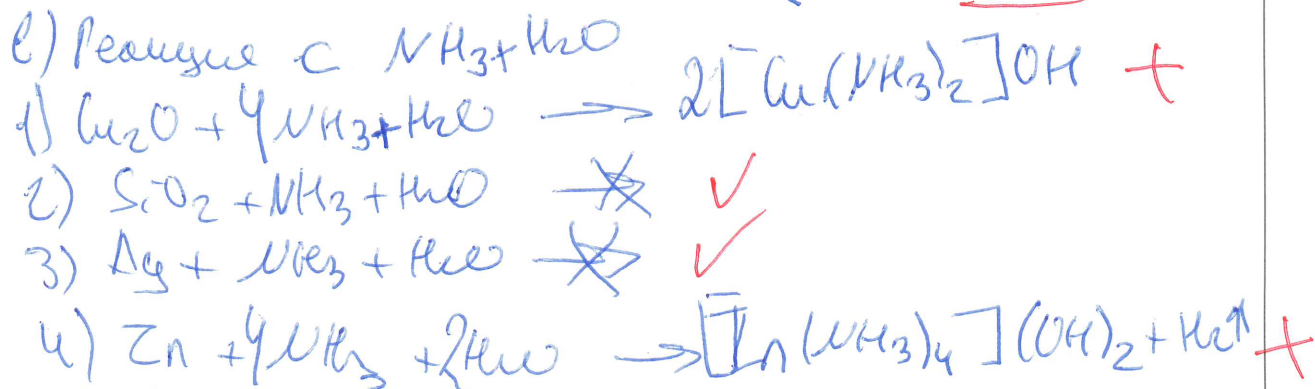 е) Реакция с NH3+H2O
1) Cu2O + 4NH3+H2O → 2[Cu(NH3)2]OH +
2) SiO2 + NH3 + H2O ↛ ✓
3) Ag + NH3 + H2O ↛ ✓
4) Zn + 4NH3 + 2H2O → [Zn(NH3)4](OH)2 + H2↑ +